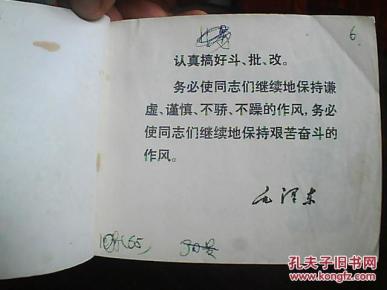 6
认真搞好斗、批、改。
务必使同志们继续地保持谦
虚、谨慎、不骄、不躁的作风，务必
使同志们继续地保持艰苦奋斗的
作风。
毛泽东
孔夫子旧书网